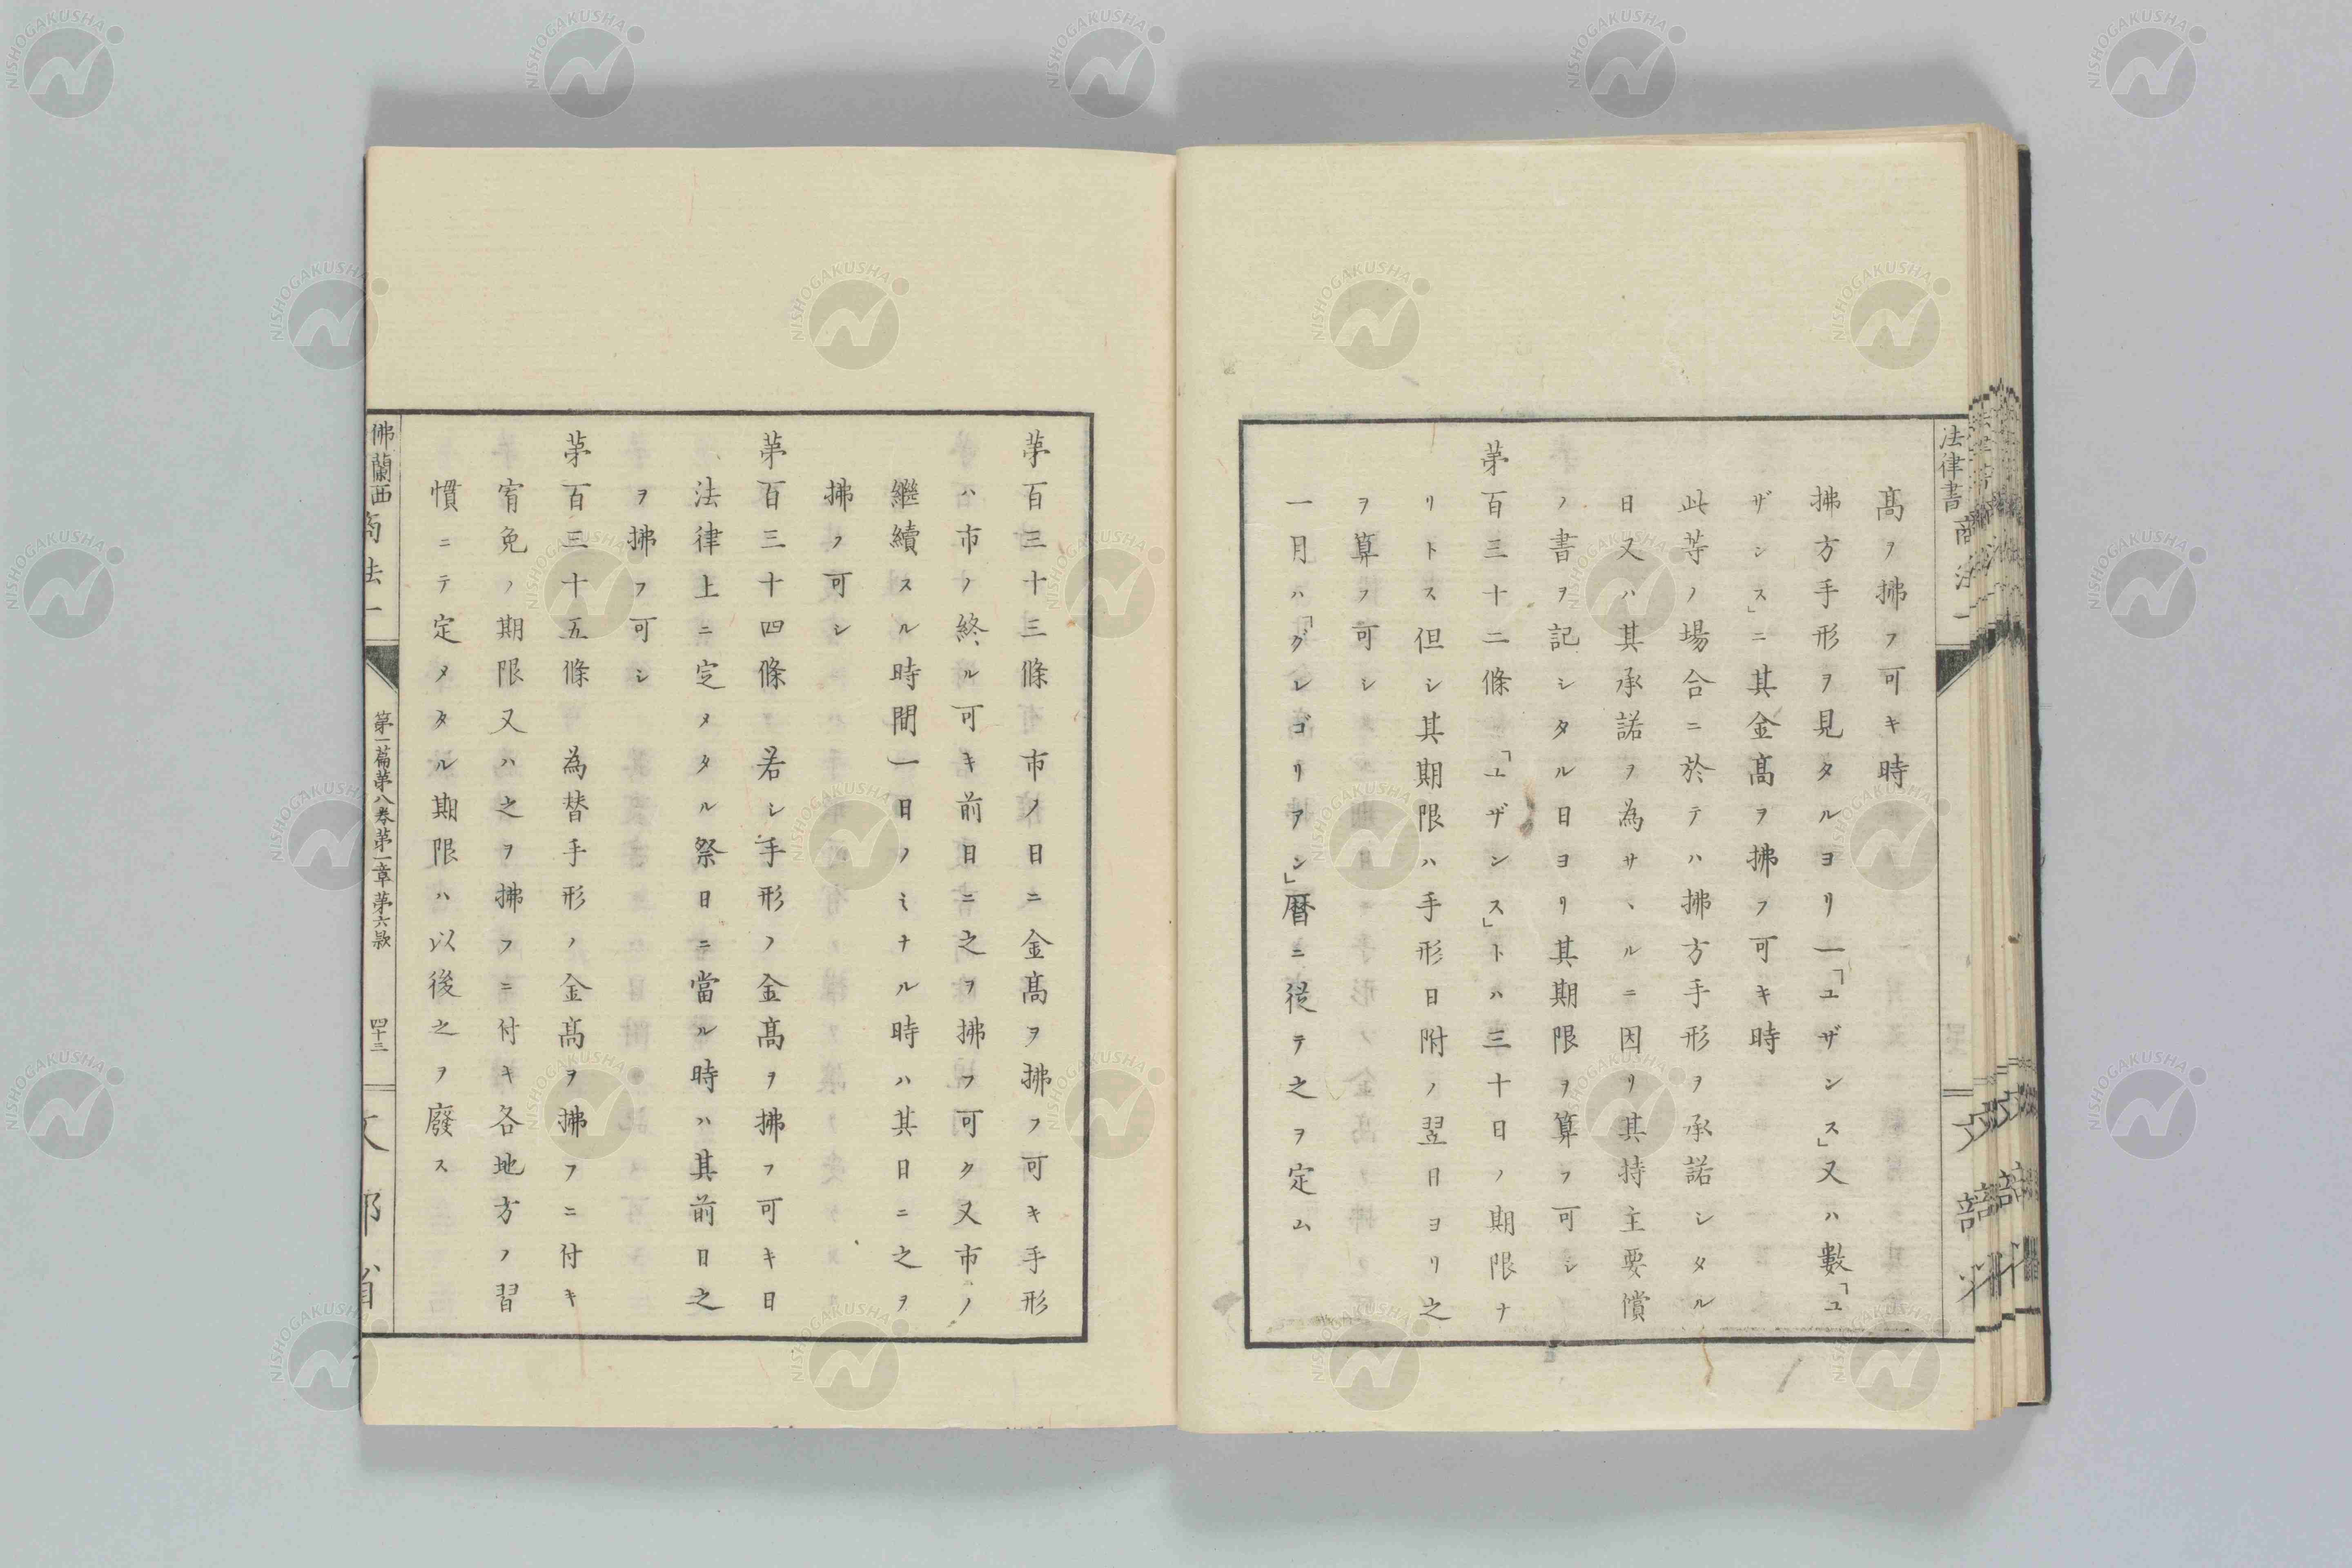 法律書 商法一
髙ヲ拂フ可キ時
拂方手形ヲ見タルヨリ一「ユザンス」又ハ數「ユ
ザンス」ニ其金髙ヲ拂フ可キ時
此等ノ場合ニ於テハ拂方手形ヲ承諾シタル
日又ハ其承諾ヲ為サヽルニ因リ其持主要償
ノ書ヲ記シタル日ヨリ其期限ヲ算フ可シ
苐百三十二條 「ユザンス」トハ三十日ノ期限ナ
リトス但シ其期限ハ手形日附ノ翌日ヨリ之
ヲ算フ可シ
一月ハ「グレゴリアン」暦ニ従テ之ヲ定ム
苐百三十三條 市ノ日ニ金髙ヲ拂フ可キ手形
ハ市ノ終ル可キ前日ニ之ヲ拂フ可ク又市ノ
繼續スル時間一日ノミナル時ハ其日ニ之ヲ
拂フ可シ
苐百三十四條 若シ手形ノ金髙ヲ拂フ可キ日
法律上ニ定メタル祭日ニ當ル時ハ其前日之
ヲ拂フ可シ
苐百三十五條 為替手形ノ金髙ヲ拂フニ付キ
宥免ノ期限又ハ之ヲ拂フニ付キ各地方ノ習
慣ニテ定メタル期限ハ以後之ヲ廢ス
佛蘭西商法一
第一篇苐八卷第一章苐六款
四十三
文部省
NISHOGAKUSHA